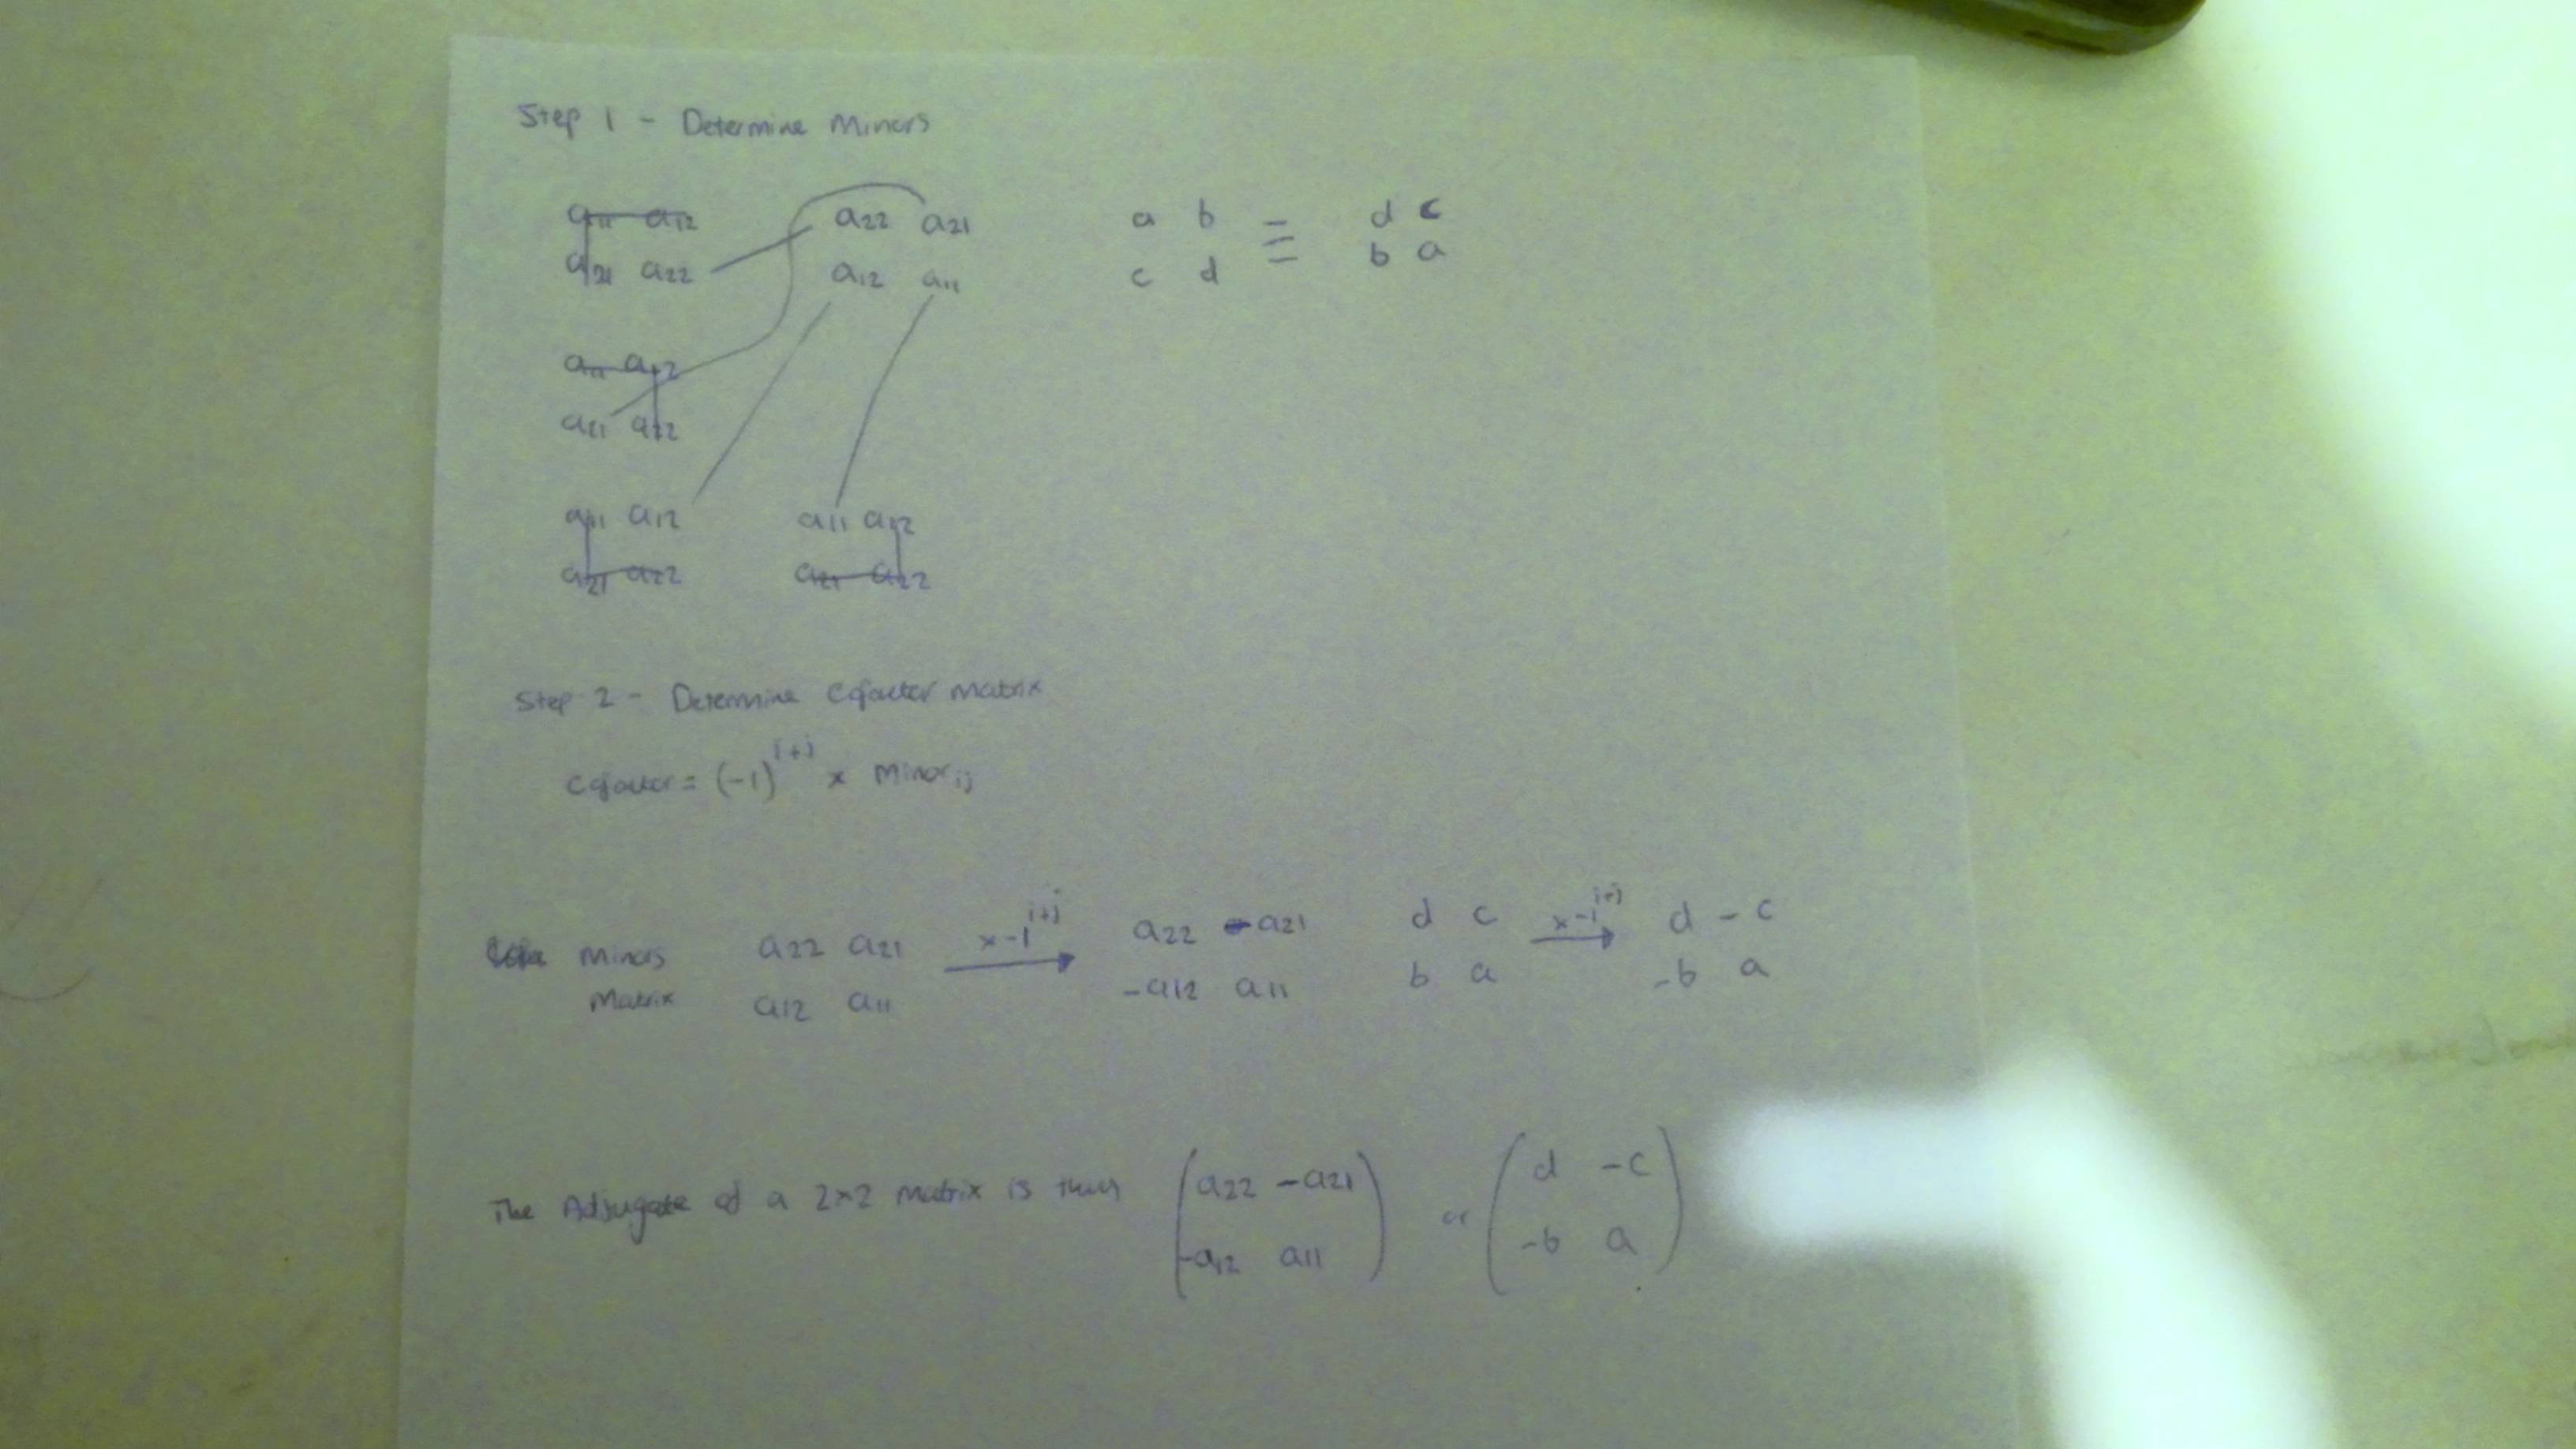 Step 1 - Determine Minors
a11 a12 a22 a21 a b = d c
a21 a22 a12 a11 c d b a
a11 a12
a21 a22
a11 a12 a11 a12
a21 a22 a21 a22
Step 2 - Determine Cofactor matrix
Cofactor = (-1)^i+j x Minor ij
Minors a22 a21 x-1^i+j a22 -a21 d c x-1^i+j d -c
Matrix a12 a11 -a12 a11 b a -b a
The Adjugate of a 2x2 matrix is thus (a22 -a21 -a12 a11) or (d -c -b a)